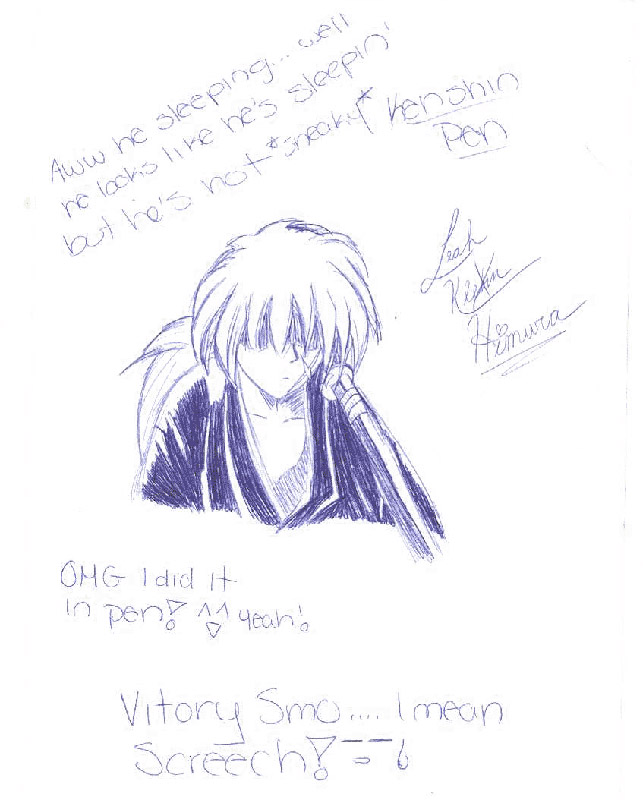 Aww he sleeping... well
he looks like he's sleepin'
but he's not *sneaky*
Kenshin
Pen
Leah
Himura
OMG I did it
In pen! ^^ yeah!
Vitory Smo.... I mean
Screech!